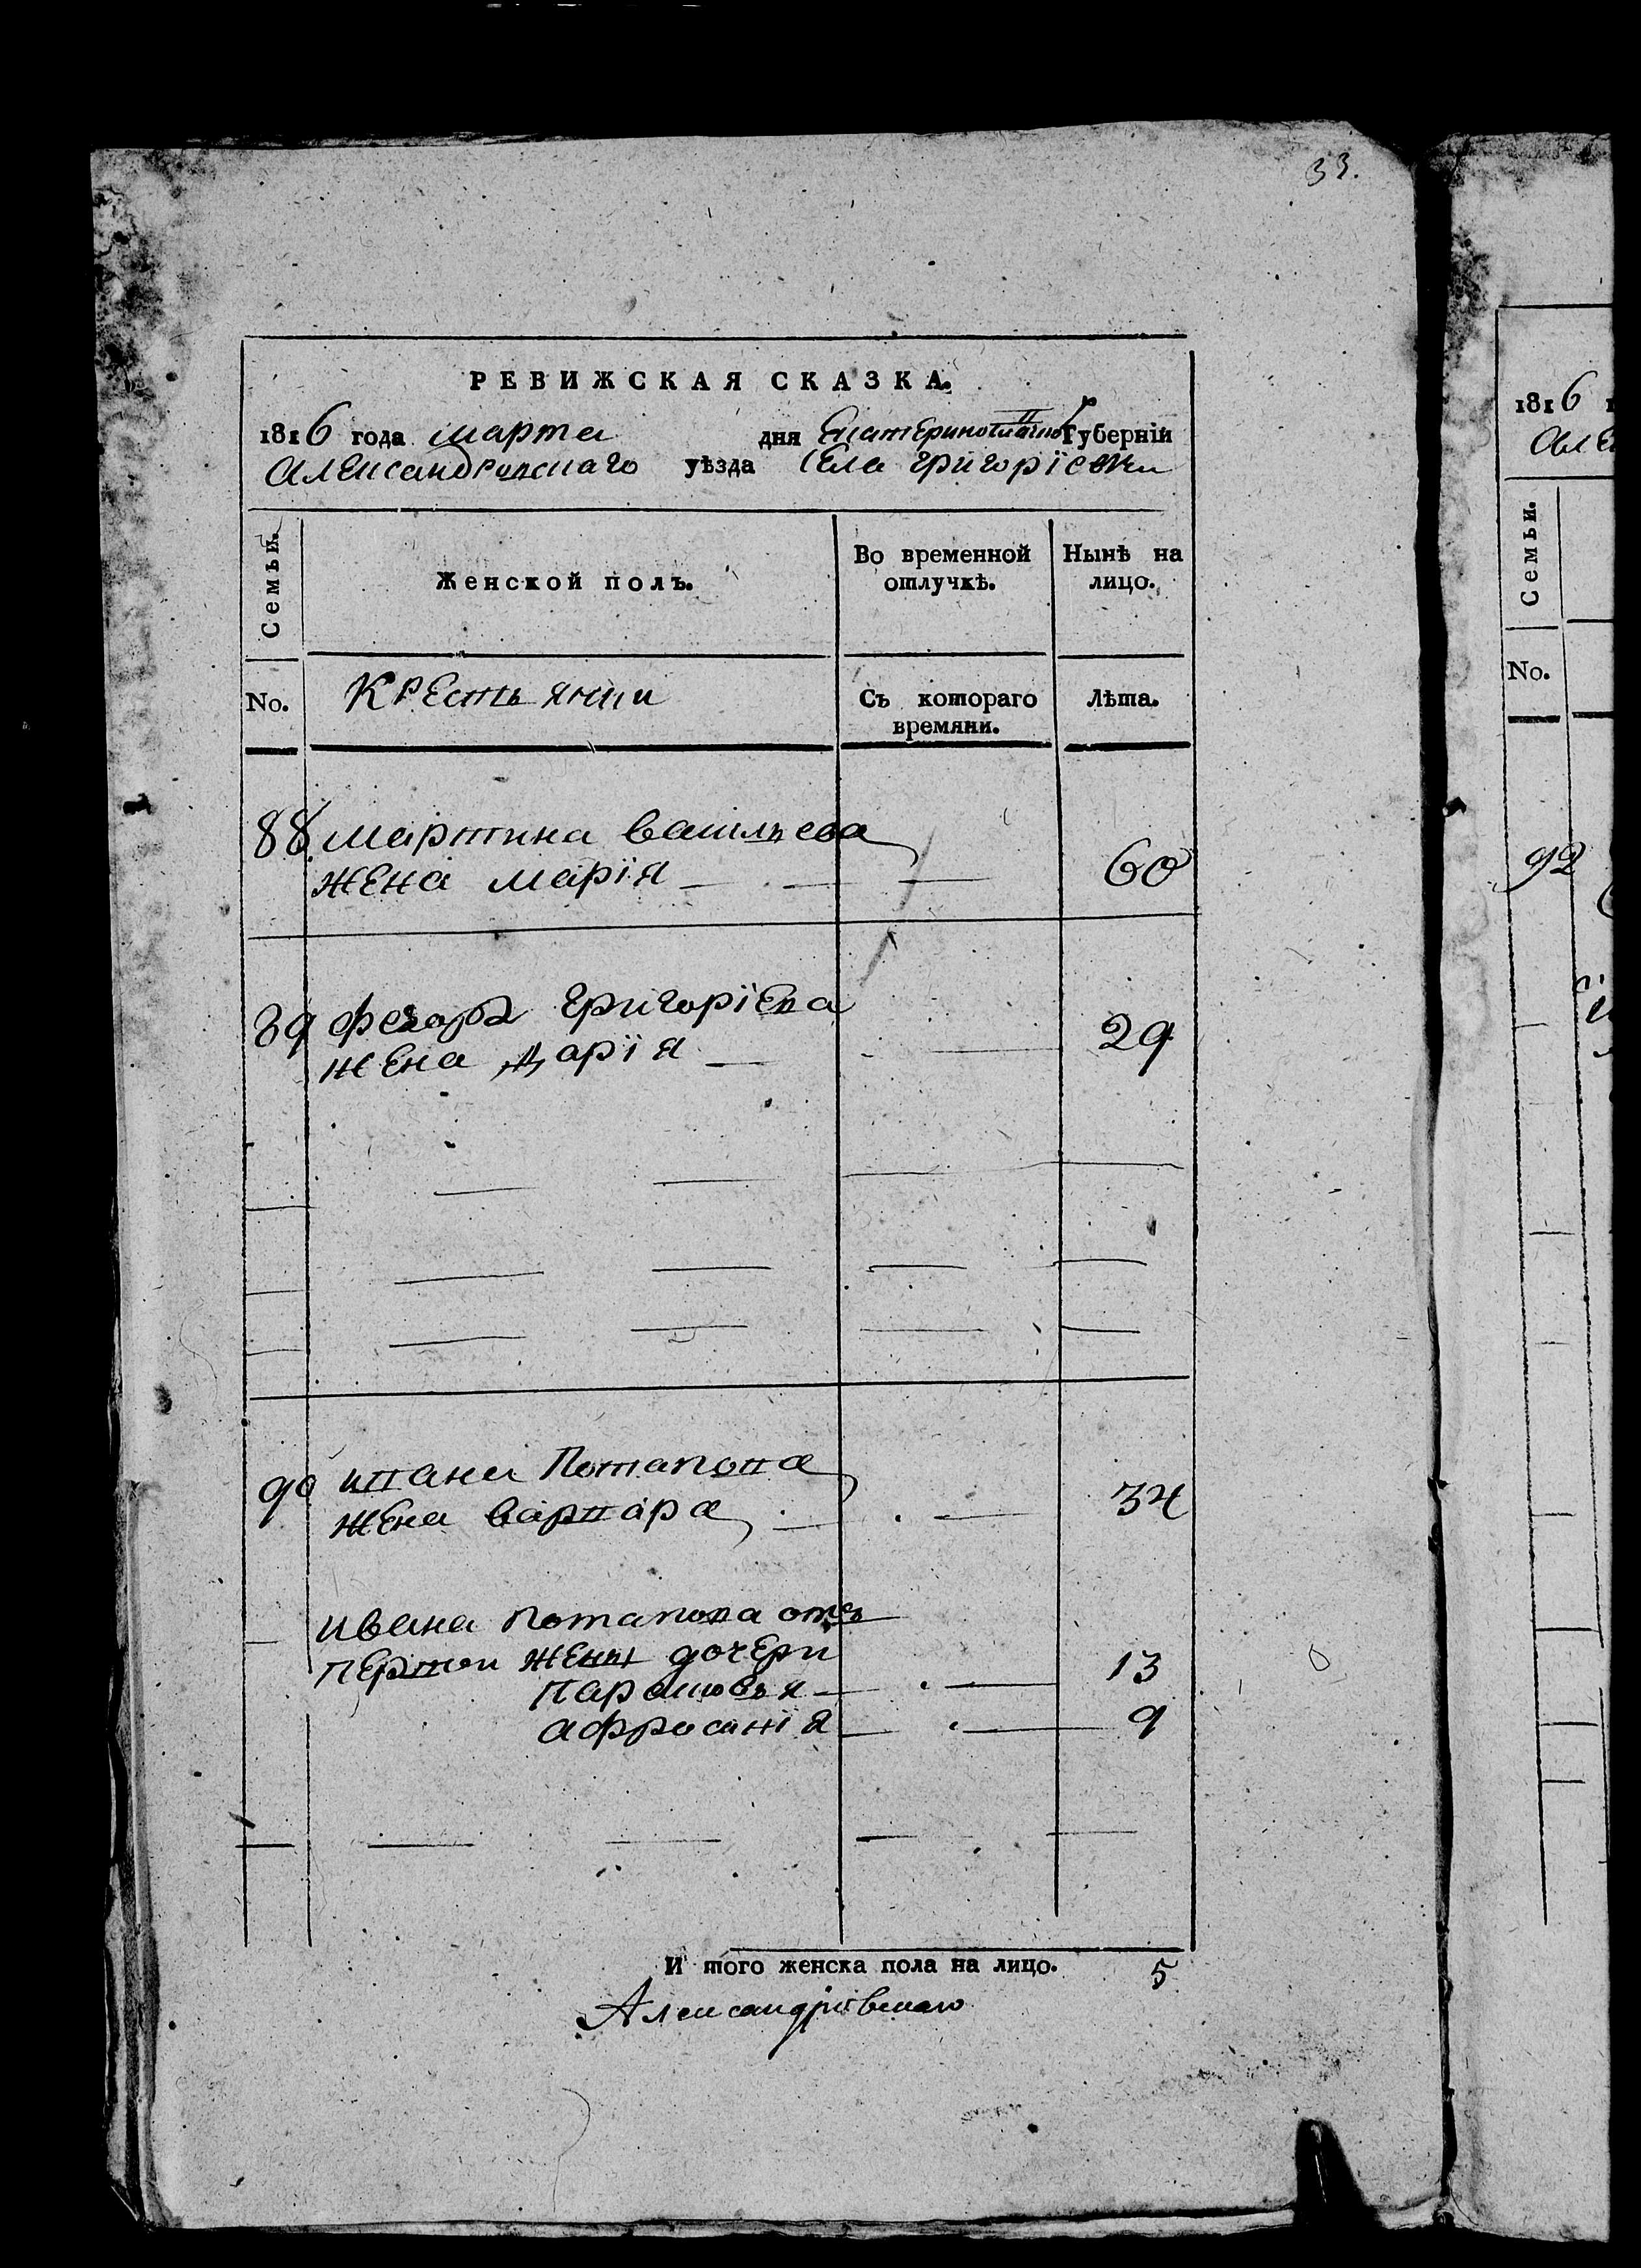 33.
РЕВИЖСКАЯ СКАЗКА.
1816 года марта дня Екатеринославской Губерніи
Александровскаго уѣзда села Григоріевки
Семьи. Женской полъ. Во временной отлучкѣ. Нынѣ на лицо.
No. Крестьянки Съ котораго времяни. Лѣта.
88 мартина васильева
жена марія — — — 60
89 федора григоріева
жена дарія — — 29
90 ивана Потапова
жена варвара — — 34
ивана потапова отъ
первои жены дочери
парасковья — — 13
афросинія — — 9
И того женска пола на лицо. 5
Александровскаго
1816
Але
Семьи.
No.
92